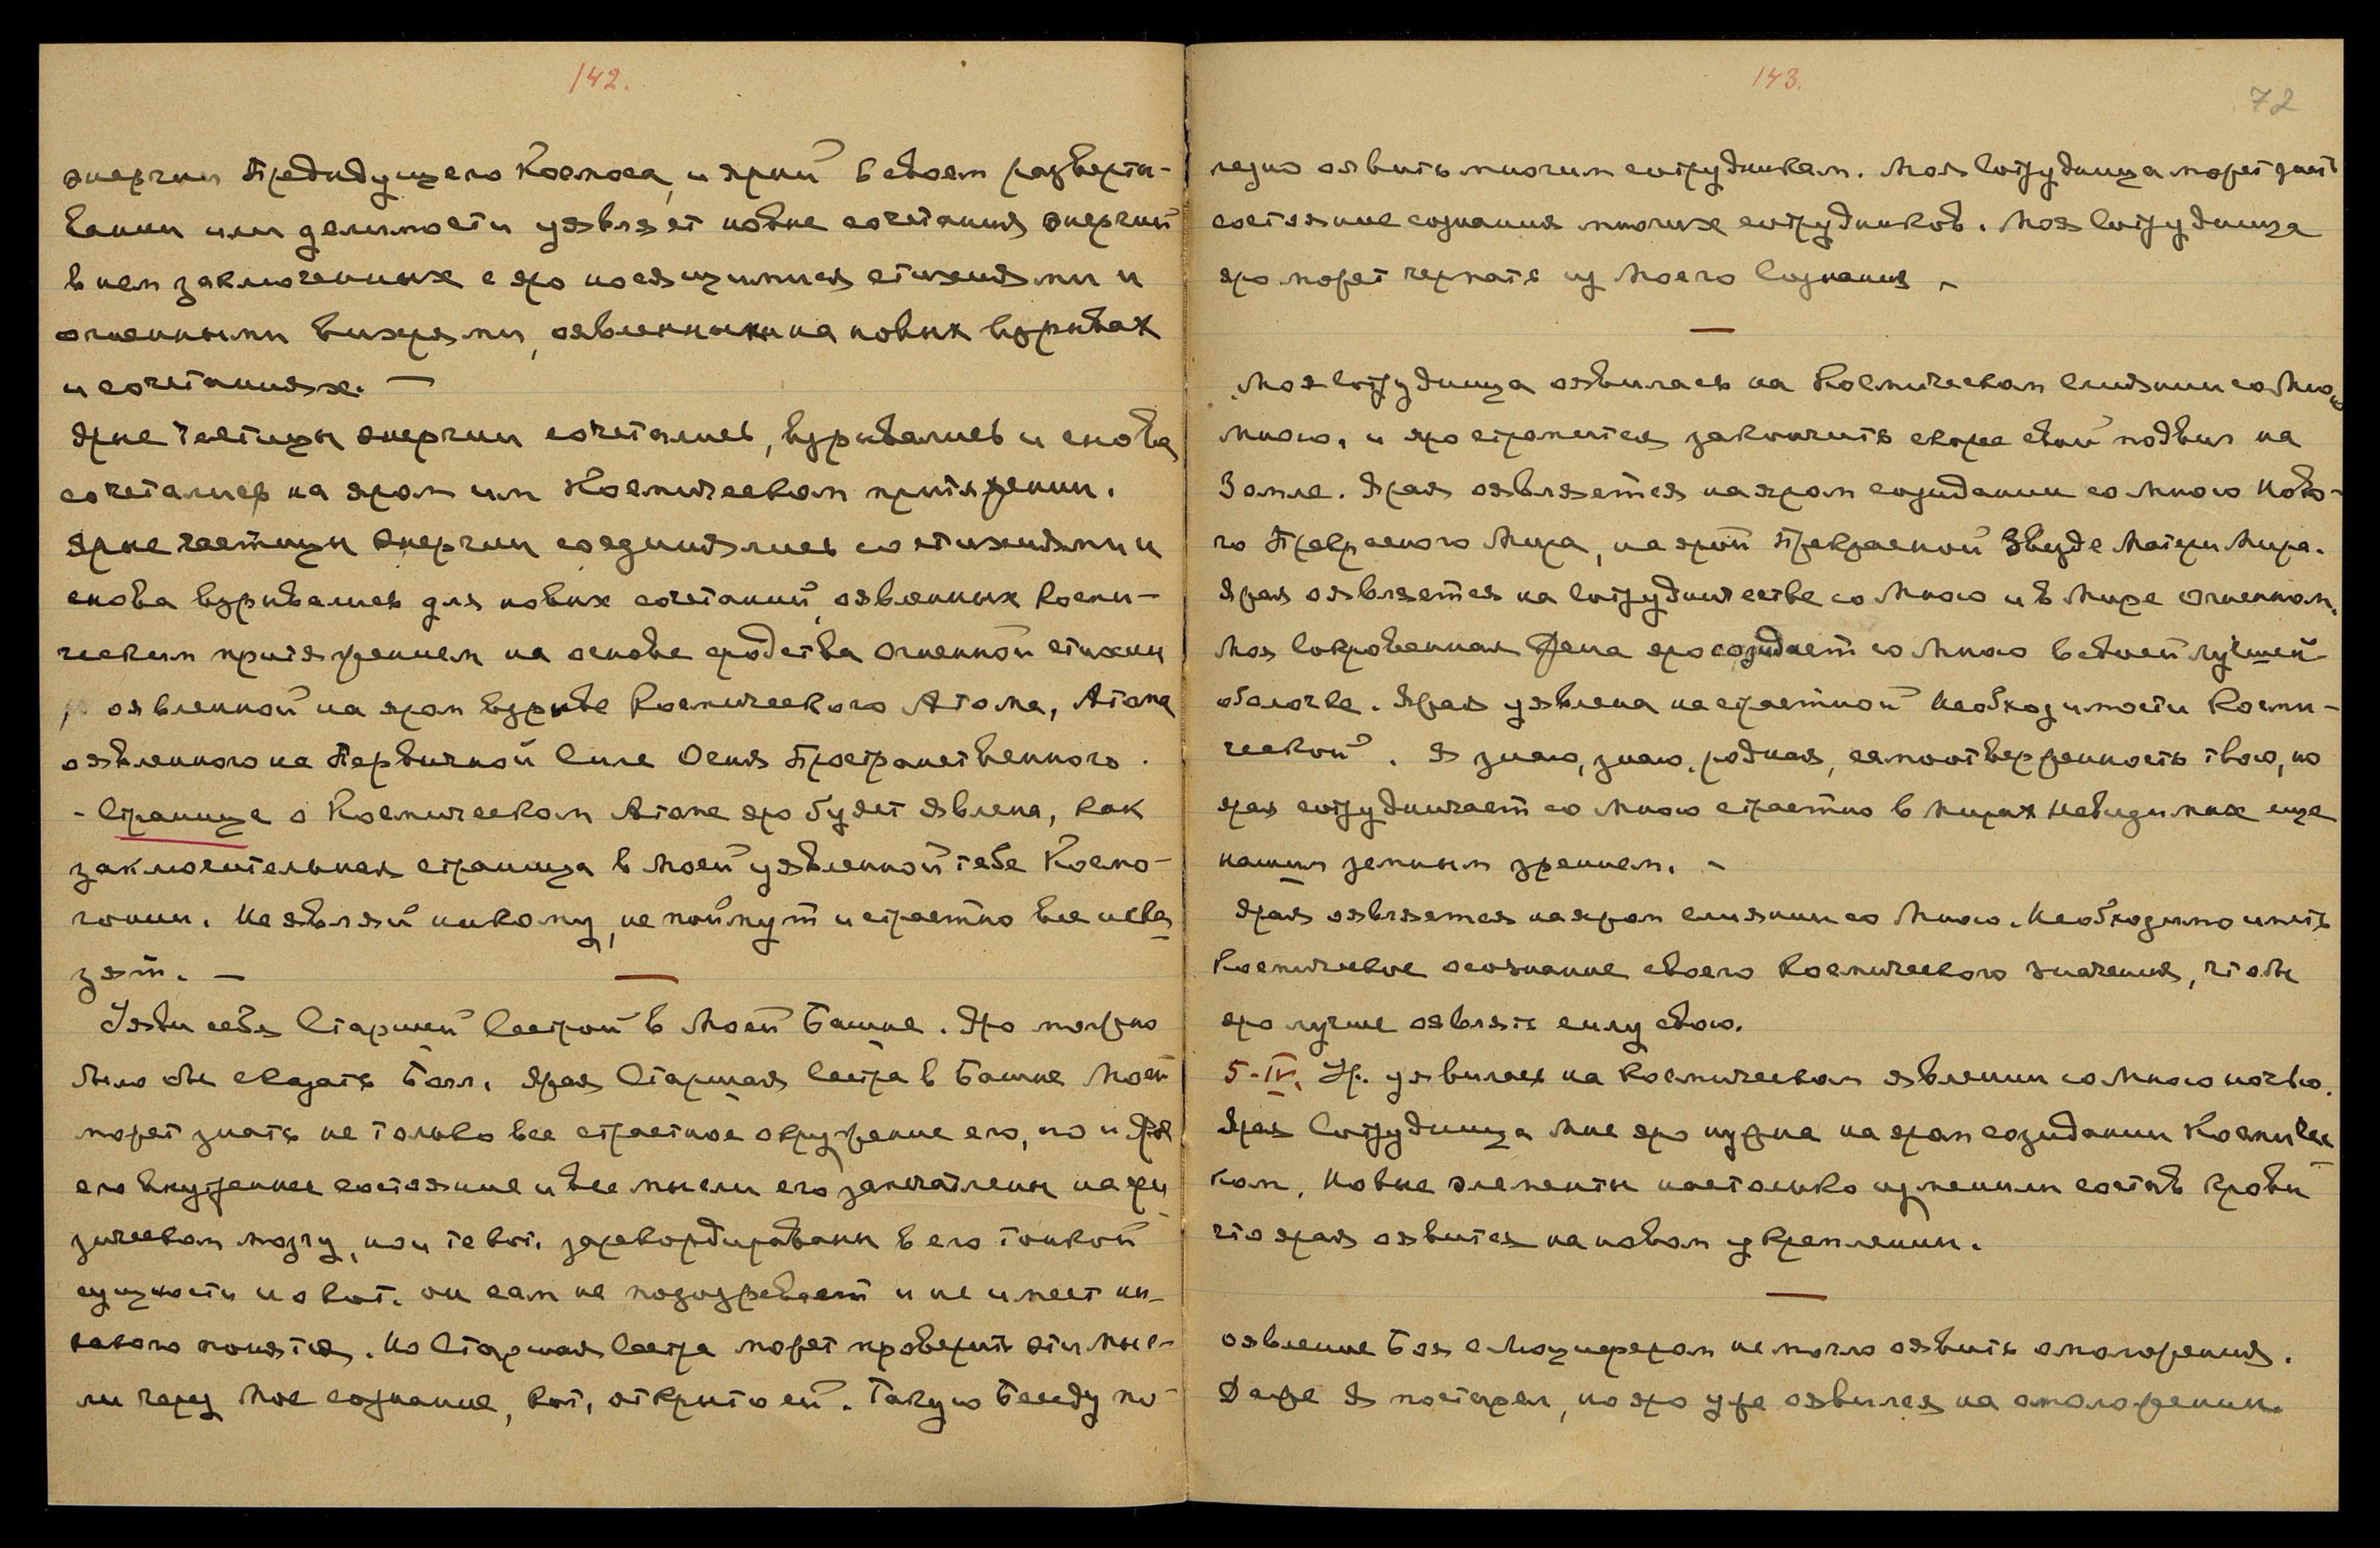 142.
энергии Предидущего Космоса, и ярый в своем развёрты-
вании или делимости уявляет новые сочетания энергий
в нем заключенных с яро носящимися стихиями и
огненными вихрями, оявленными на новых взрывах
и сочетаниях. —
Ярые частицы энергии сочетались, взрывались и снова
сочетались на яром им Космическом притяжении.
Ярые частицы энергии соединялись со стихиями и
снова взрывались для новых сочетаний, оявленных Косми-
ческим притяжением на основе сродства огненной стихии
оявленной на яром взрыве Космического Атома, Атома
оявленного на Первичной Силе Огня Пространственного.
- Страница о Космическом Атоме яро будет явлена, как
заключительная страница в Моей уявленной тебе Космо-
гонии. Не являй никому, не поймут и страстно все иска-
зят. —
Уяви себя Старшей Сестрой в Моей Башне. Яро можно
было бы сказать Болл. Ярая Старшая Сестра в Башне Моей
может знать не только все страстное окружение его, но и
его внутреннее состояние и все мысли его запечатлены на фи-
зическом мозгу, но и те кот. зарекордированы в его тонкой
сущности и о кот. он сам не подозревает и не имеет ни-
какого понятия. Но Старшая Сестра может проверить эти мыс-
ли через Мое сознание, кот. открыто ей. Такую Беседу по-
143.
72
лезно оявить многим сотрудникам. Моя Сотрудница может знать
состояние сознания многих сотрудников. Моя Сотрудница
яро может черпать из Моего Сознания. -
—
Моя Сотрудница оявилась на Космическом слиянии со Мною
Мною, и яро стремится закончить скорее свой подвиг на
Земле. Ярая оявляется на яром созидании со Мною Ново-
го Прекрасного Мира, на ярой Прекрасной Звезде Матери Мира.
Ярая оявляется на Сотрудничестве со Мною и в Мире Огненном.
Моя Сокровенная Жена яро созидает со Мною в своей лучшей
оболочке. Ярая уявлена на страстной Необходимости Косми-
ческой. Я знаю, знаю, родная, самоотверженность твою, но
ярая сотрудничает со Мною страстно в Мирах Невидимых еще
нашим земным зрением. -
Ярая оявляется на яром слиянии со Мною. Необходимо иметь
Космическое осознание своего Космического значения, чтобы
яро лучше оявлять силу свою.
5-IV. Ур. уявилась на Космическом явлении со Мною ночью.
Ярая Сотрудница Мне яро нужна на яром созидании Космичес-
ком. Новые элементы настолько изменили состав крови
что ярая оявится на новом укреплении.
—
оявление Боя с Люцифером не могло оявить омоложения.
Даже Я постарел, но яро уже оявился на омоложении.